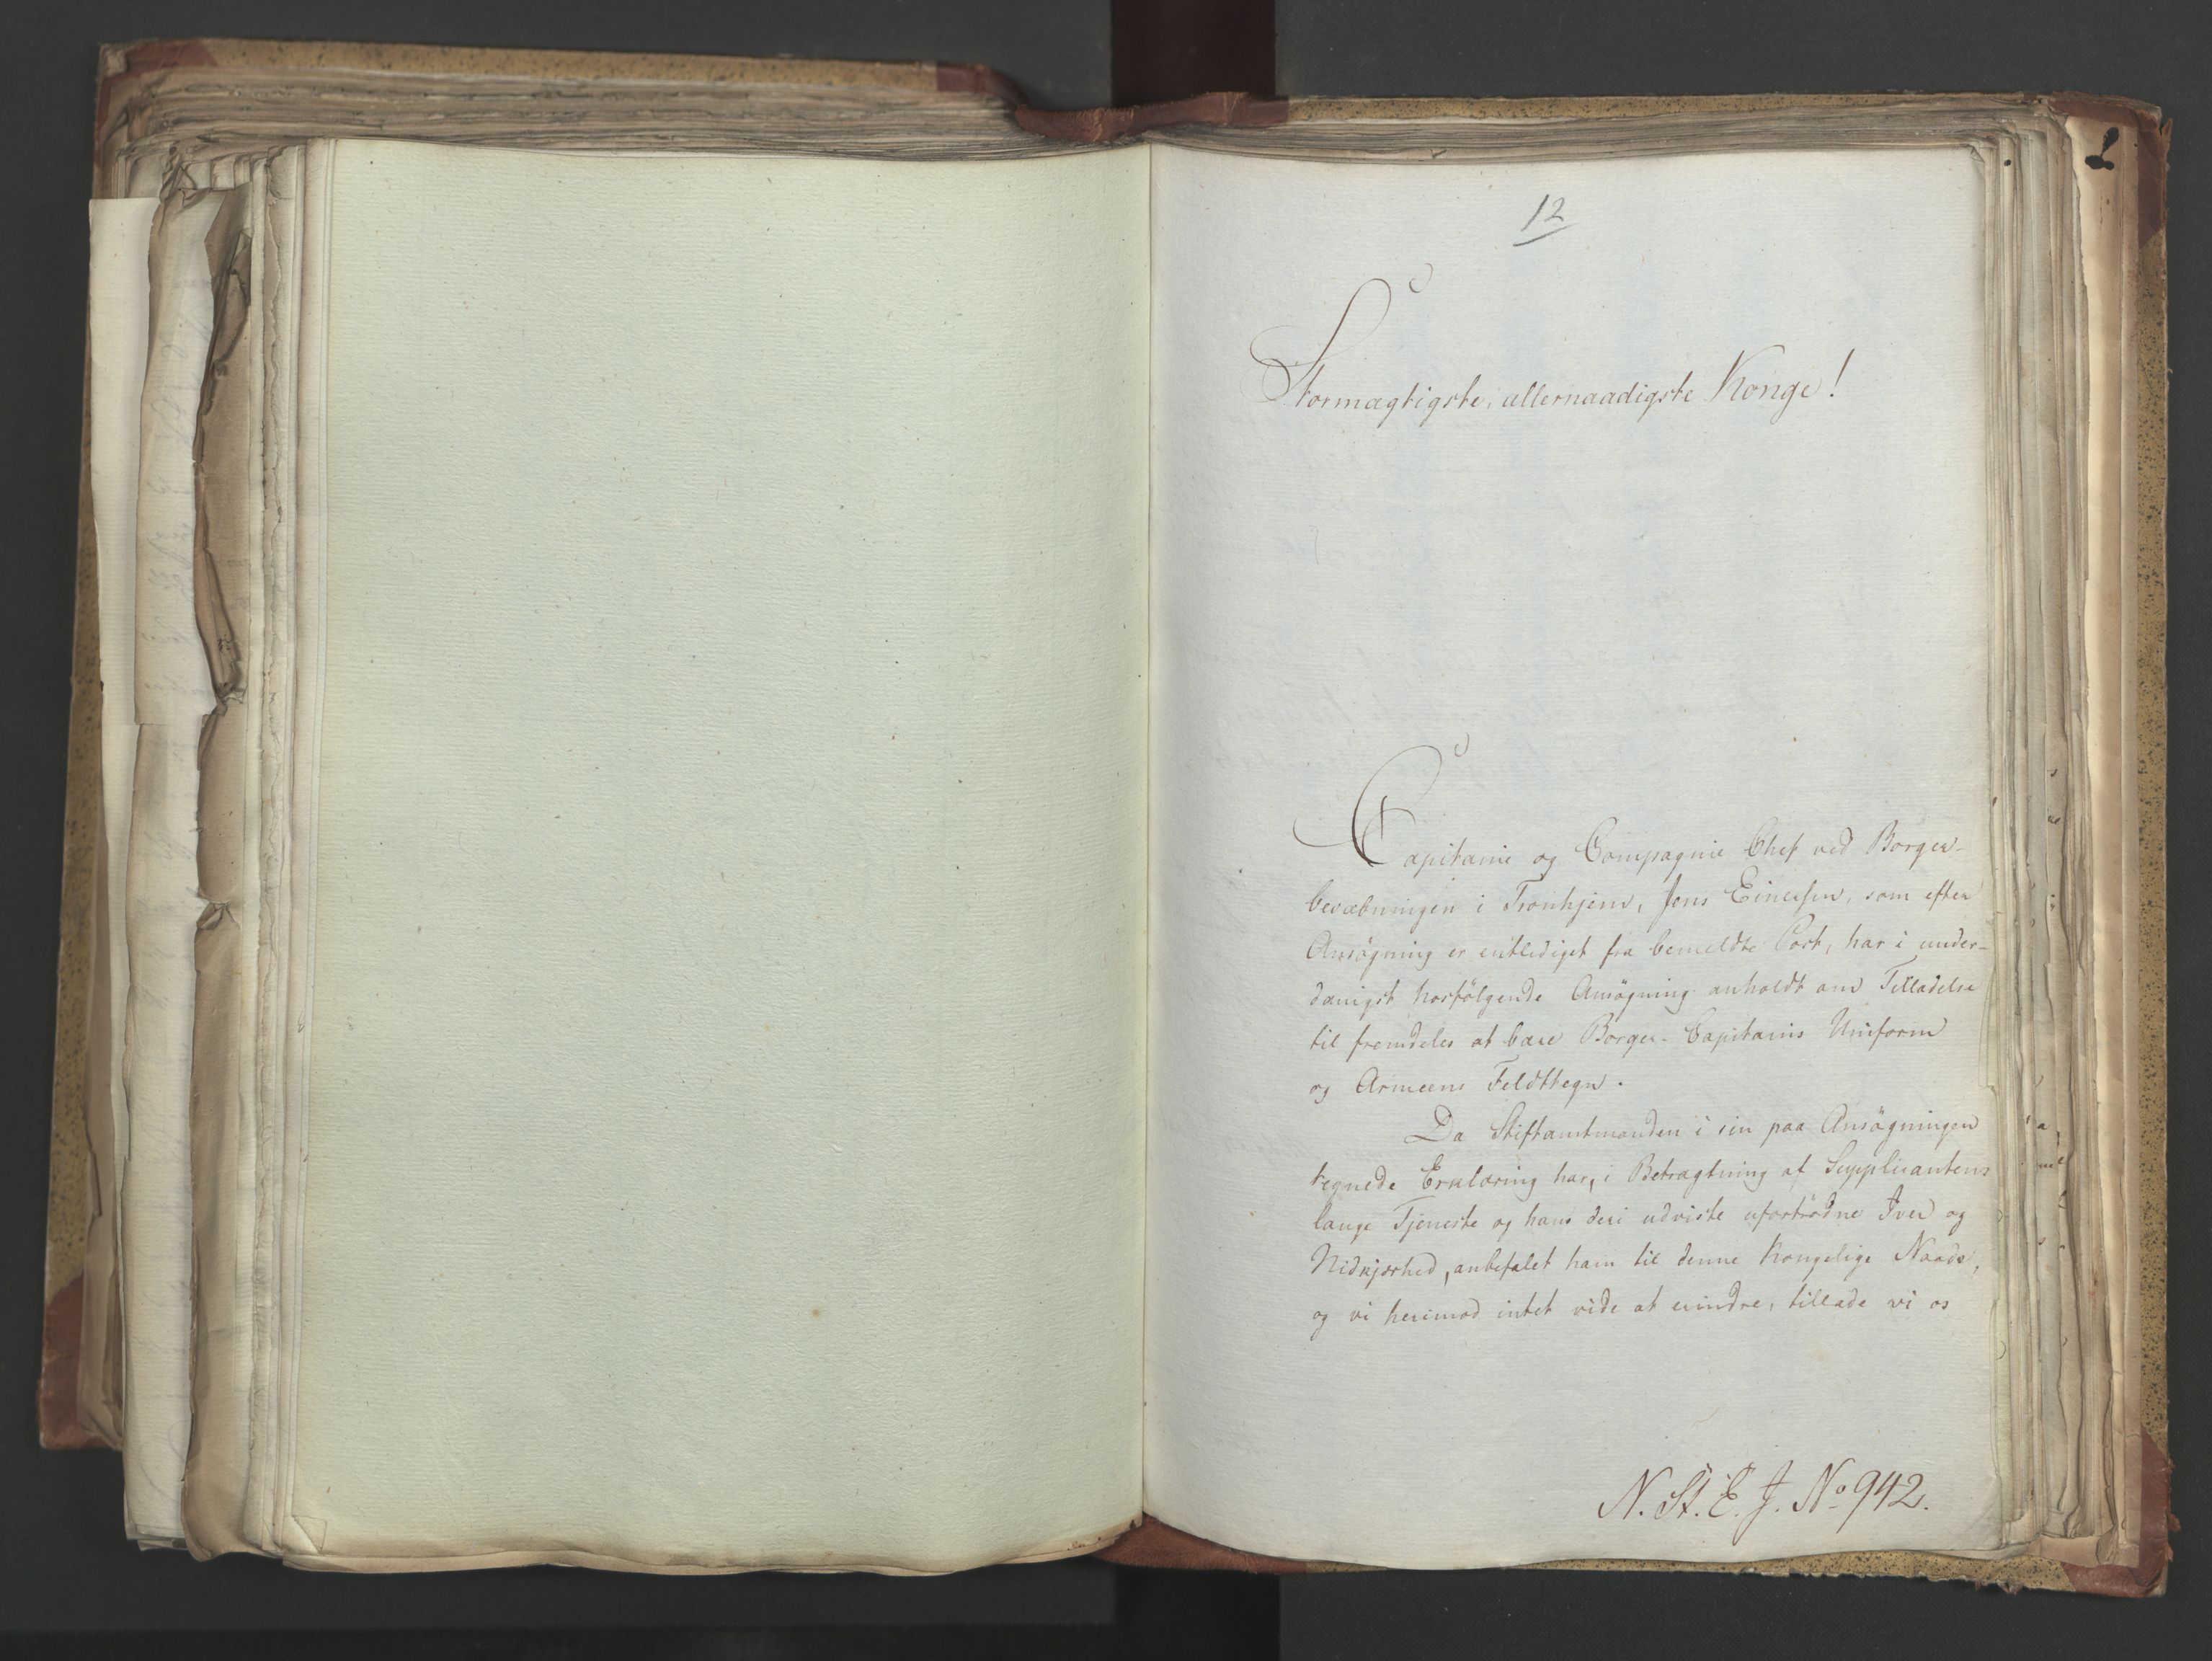 12
Stormægtigste, allernaadigste Konge!
Capitaine og Compagnie Chef ved Borger-
bevæbningen i Tronhjem, Jens Einersen, som efter
Ansøgning er entlediget fra bemeldte Post, har i under-
danigst hosfölgende Ansögning anholdt om Tilladelse
til fremdeles at bære Borger-Capitains Uniform
og Armeens Feldttegn.
Da Stiftamtmanden i sin paa Ansögningen
tegnede Erklæring har, i Betragtning af Supplicantens
lange Tjeneste og hans deri udviste ufortrödne Iver og
Nidkjærhed, anbefalet ham til denne Kongelige Naade,
og vi herimod intet vide at erindre, tillade vi os
N. St. E. J. No 942.